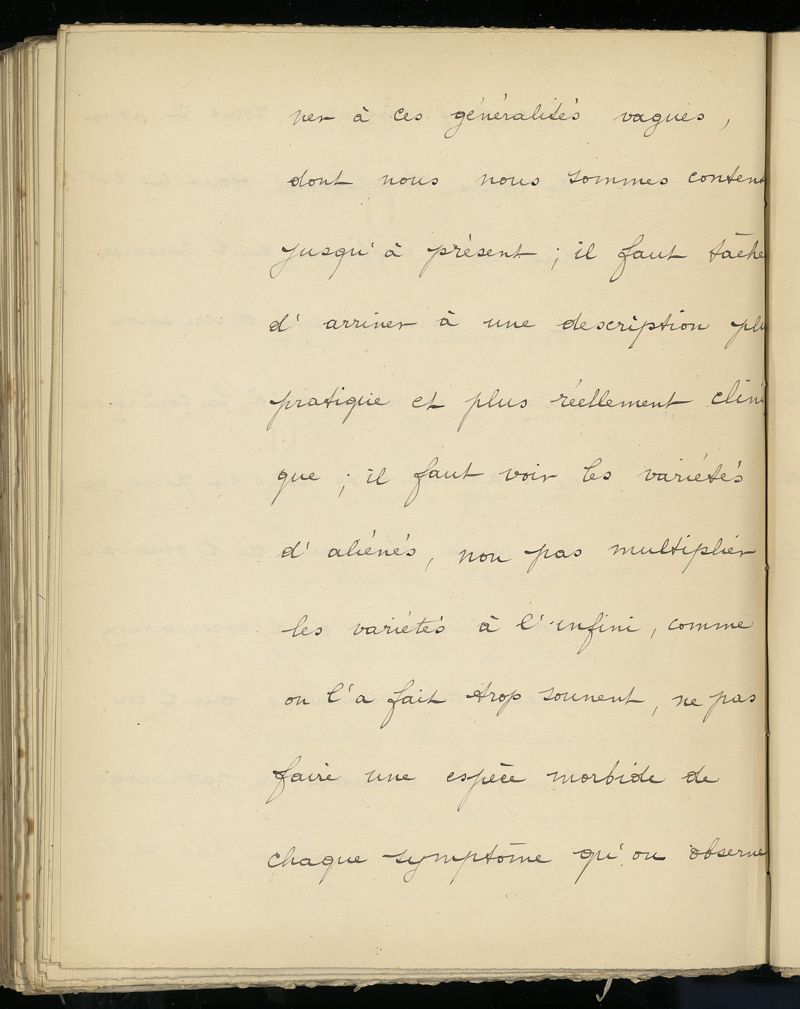 ner à ces généralités vagues,
dont nous nous sommes conten
jusqu'à présent ; il faut tâche
d'arriver à une description plu
pratique et plus réellement clini
que ; il faut voir les variétés
d'aliénés, non pas multiplier
les variétés à l'infini, comme
on l'a fait trop souvent, ne pas
faire une espèce morbide de
chaque symptôme qu'on observe